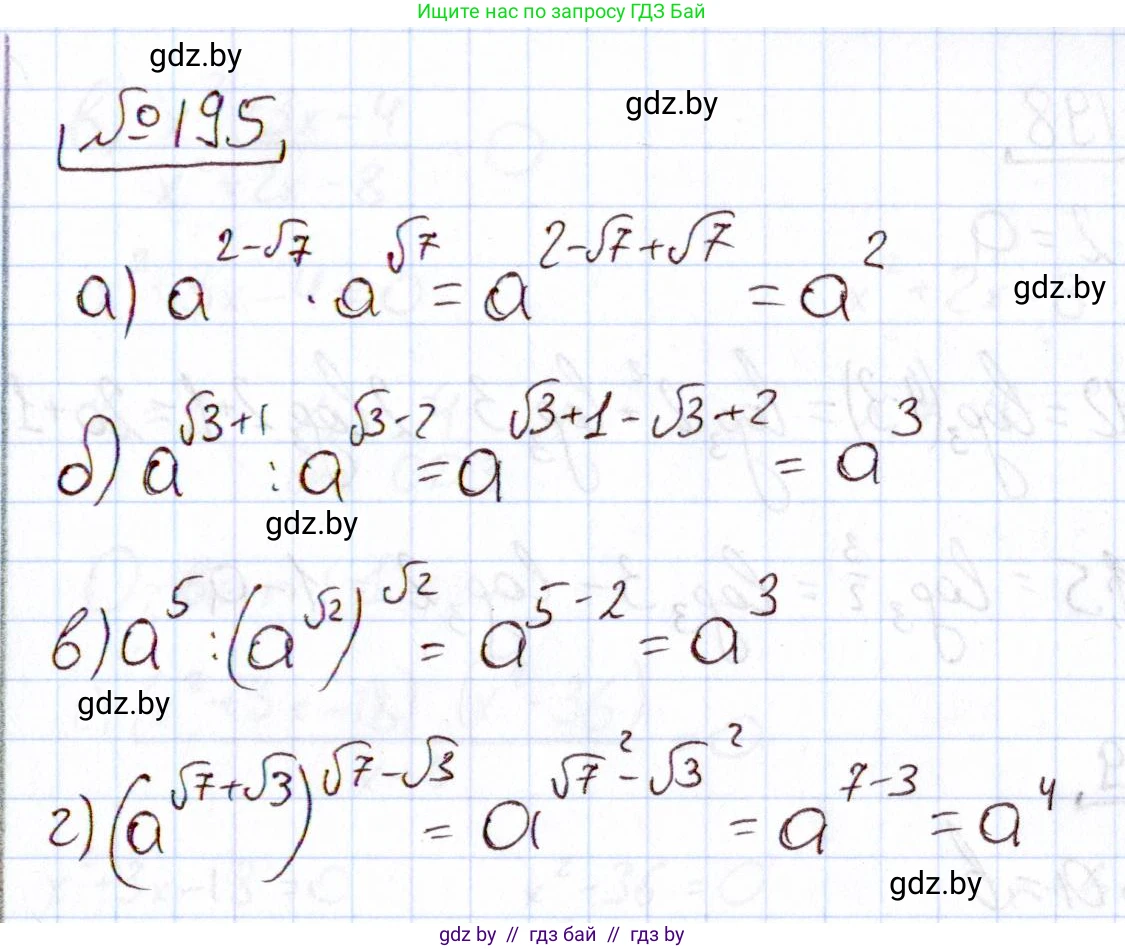 Ищите нас по запросу ГДЗ Бай
gdz.by
№195
gdz.by
а) a^{2-√7} · a^{√7} = a^{2-√7+√7} = a^2
gdz.by
б) a^{√3+1} : a^{√3-2} = a^{√3+1-√3+2} = a^3
gdz.by
в) a^5 : (a^{√2})^{√2} = a^{5-2} = a^3
gdz.by
г) (a^{√7+√3})^{√7-√3} = a^{√7^2-√3^2} = a^{7-3} = a^4
gdz.by
gdz by // гдз бай // гдз by